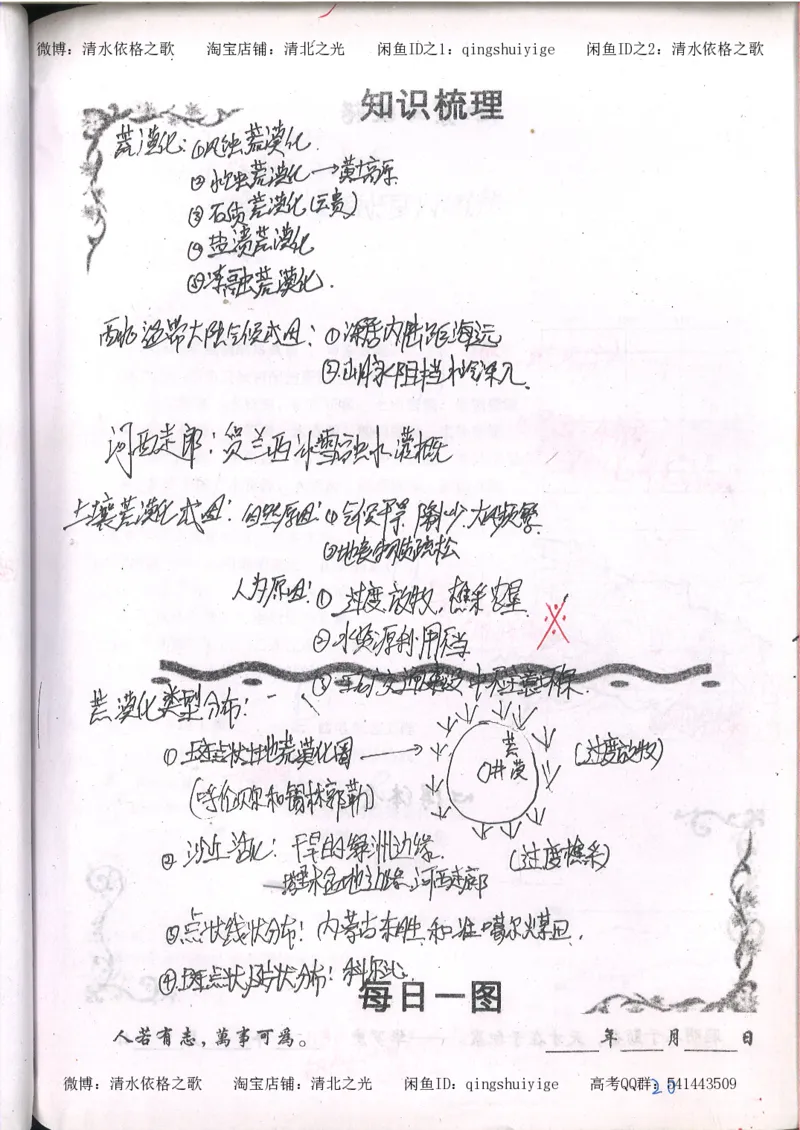 微博：清水依格之歌 淘宝店铺：清北之光 闲鱼ID之1：qingshuiyige 闲鱼ID之2：清水依格之歌
知识梳理
荒漠化：①风蚀荒漠化
②水蚀荒漠化→黄土高原
③石质荒漠化(云贵)
④盐渍荒漠化
⑤冻融荒漠化.
西北温带大陆气候成因：①深居内陆距海远
②山脉阻挡 深入.
河西走廊：贺兰西冰雪融水灌概
土壤荒漠化成因：自然原因：①气候干旱 降水少.大风频繁
②地表物质疏松
人为原因：①过度放牧，樵采
②水资源利用不当
③工矿交通建设中不注意环保.
荒漠化类型分布：
①斑点状土地荒漠化圈
荒漠
井
(过度放牧)
(呼伦贝尔和锡林郭勒)
②沙丘活化：干旱的绿洲边缘.
(过度樵采)
塔里木盆地边缘、河西走廊
③点状线状分布：内蒙古东胜和准噶尔煤田.
④斑点状、片状分布：科尔沁.
每日一图
人若有志，萬事可為。 年 月 日
微博：清水依格之歌 淘宝店铺：清北之光 闲鱼ID：qingshuiyige 高考QQ群：541443509
20